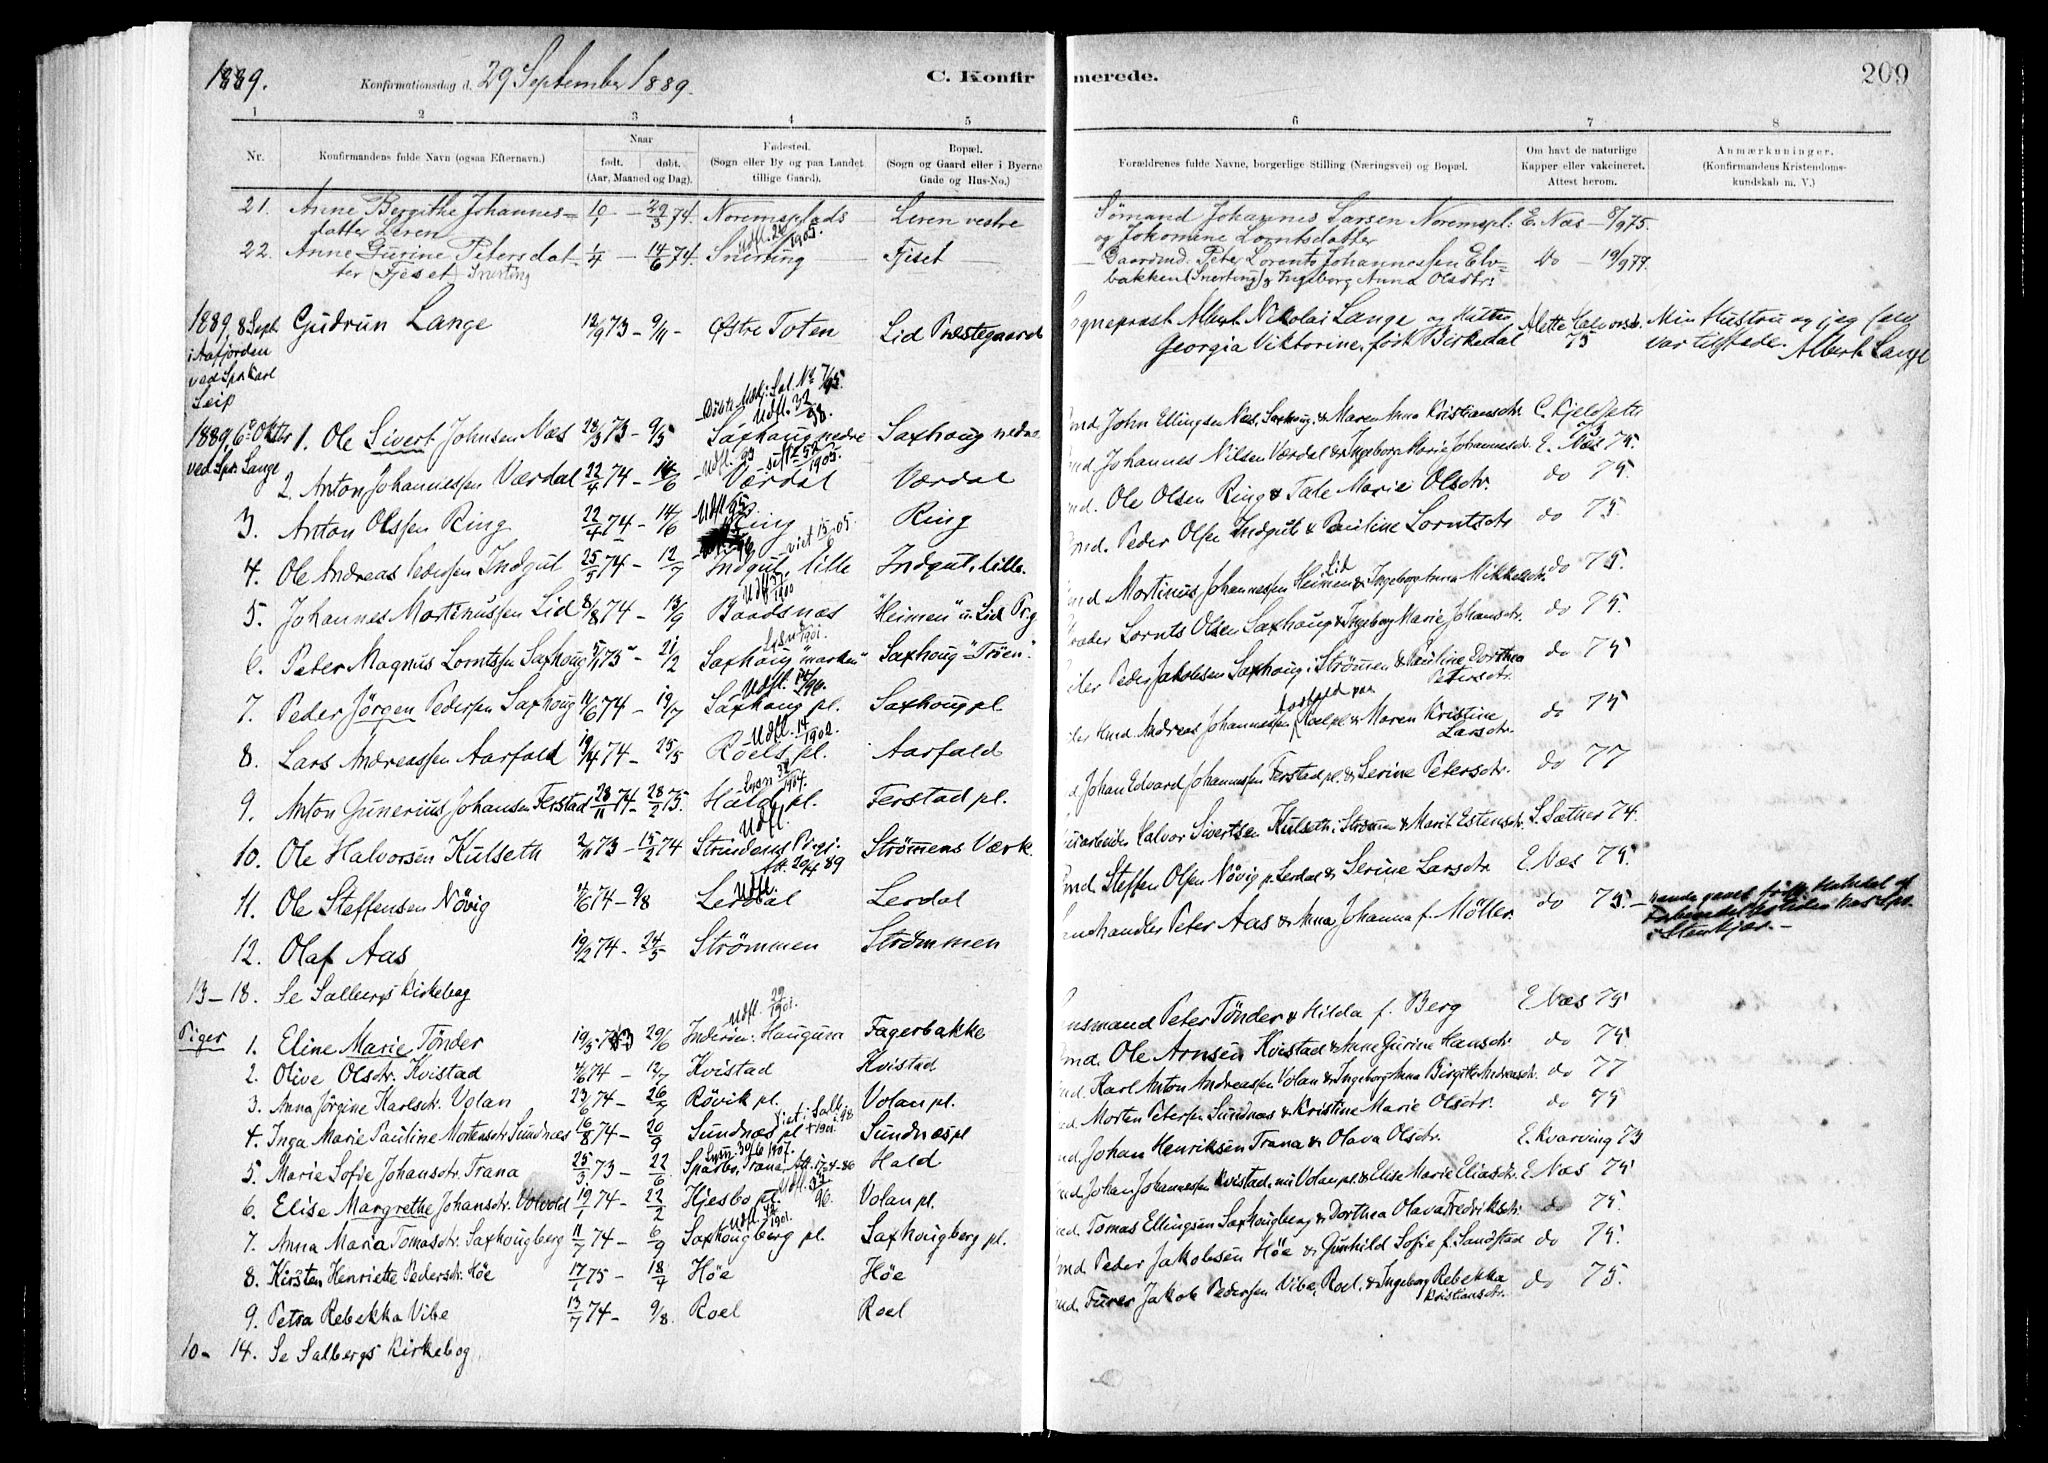 1889. Konfirmationsdag d. 29 September 1889. C. Konfirmerede. 209
1 2 3 4 5 6 7 8
Nr. Konfirmandens fulde Navn (ogsaa Efternavn.) Naar født. døbt. (Aar, Maaned og Dag). Fødested. (Sogn eller By og paa Landet tillige Gaard). Bopæl. (Sogn og Gaard eller i Byerne Gade og Hus-No.) Forældrenes fulde Navne, borgerlige Stilling (Næringsvei) og Bopæl. Om havt de naturlige Kapper eller vakcineret. Attest herom. Anmærkninger. (Konfirmandens Kristendoms-kundskab m. V.)
21. Anne Bergithe Johannes= 10/1 - 29/3 74. Noremsplads Leren vestre Sømand Johannes Larsen Noremspl: E. Næs - 8/9 75.
datter Leren og Jokomine Lorntsdatter
22. Anne Gurine Petersdat- 1/4 - 14/6 74. Snerting Fjeset Gaardmd. Peter Lorents Johannessen Elv= do - 19/9 77.
ter (Fjeset) Snerting bakken (Snerting) & Ingeborg Anna Olsdtr:
1889, 8 Sept. Gudrun Lange 12/9 73 - 9/11 Østre Toten Lid Præstegaard Sogneprest Albert Nikolai Lange og Hustru Alette Halvorsdr. Min Hustru og jeg selv
i Aafjorden Georgia Viktorine, født Birkedal 75 var tilstede. Albert Lange
ved Spr. Karl
Leip
1889 6 Oktbr 1. Ole Sivert Johnsen Næs 28/3 73 - 9/5 Saxhaug nedre Saxhaug nedre John Ellingsen Næs, Saxhaug, & Maren Anna Kristiansdr. C. Kjeldseth 73
ved Spr. Lange
2. Anton Johannessen Værdal 22/4 74 - 14/6 Værdal Værdal Johannes Nilsen Værdal & Ingeborg Marie Johannesdr. E. Næs 75.
3. Anton Olssen Ring 22/4 74 - 14/6 Ring Ring Ole Olsen Ring & Tale Marie Olsdr. do 75.
4. Ole Andreas Pedersen Indgut 25/5 74 - 12/7 Indgut, lille Indgut, lille. Peder Olsen Indgut & Pauline Lorntsdr do 75
5. Johannes Mortinussen Lid 8/8 74 - 13/9 Baadsnæs "Heimen" u. Lid Prg Mortinus Johannessen Heimen Lid & Ingeborg Anna Mikkelsdr. do 75.
6. Peter Magnus Lorntssen Saxhoug 5/1 75 - 21/2 Saxhoug "marken" Saxhoug "Trøen". Lornts Olsen Saxhaug & Ingeborg Marie Johansdr. do 75.
7. Peder Jörgen Pedersen Saxhoug 11/6 74 - 19/7 Saxhaug pl. Saxhoug pl. Peder Jakobsen Saxhoug i Strømmen & Pauline Dorthea Petersdr. do 75
8. Lars Andreassen Aarfald 19/4 74 - 25/5 Roels pl. Aarfald Andreas Johannessen Roelpl & Maren Kristine Larsdr. do 75
9. Anton Gunerius Johansen Ferstad 28/11 74 - 28/2 75. Hald pl. Ferstad pl. Johan Edvard Johannessen Ferstad pl. & Serine Petersdr. do 77
10. Ole Halvorsen Kulseth 2/11 73 - 15/2 74 Strindens Prgj. Att. 20/4 89 Strömens Værk. Halvor Sivertsen Kulseth, Strömen & Marit Estensdr. S. Sæther 74.
11. Ole Steffensen Növig 4/6 74 - 9/8 Lerdal Lerdal Steffen Olsen Növig p. Lerdal & Serine Larsdr. E Næs 75.
12. Olaf Aas 19/2 74 - 24/5 Strömmen Strömmen Landhandler Peter Aas & Anna Johanna f. Möller. do 75.
13 - 18. Se Salbergs Kirkebog
Piger 1. Eline Marie Tönder 19/5 73 29/6 Inderöen: Haugum Fagerbakke Lensmand Peter Tönder & Hilda f. Berg E Næs 75
2. Olive Olsdr. Kvistad 4/6 74 - 12/7 Kvistad Kvistad Ole Arnsen Kvistad & Anne Gurine Hansdr. do 75.
3. Anna Jörgine Karlsdr. Volan 23/6 74 - 26/7 Rövik pl. Volan pl. Karl Anton Andreassen Volan & Ingeborg Anna Birgitte Andreasdr. do 77
4. Inga Marie Pauline Mortensdr Sundnæs 16/8 74 - 20/9 Sundnæs pl Sundnæs pl Morten Petersen Sundnæs & Kristine Marie Olsdr. do 75
5. Marie Sofie Johansdr. Trana 25/3 73 - 22/6 Sparbu, Trana Hald Johan Henriksen Trana & Olava Olsdr. E. Kvarving 73
6. Elise Margrethe Johansdr. Volvold 19/1 74 - 22/2 Hjesbo pl. Volan pl. Johan Johannessen Kvistad, nu Volan pl. & Elise Marie Eliasdr. E Næs 75.
7. Anna Maria Tomasdr. Saxhougberg 11/7 74 - 6/9 Saxhougberg pl. Saxhougberg pl. Tomas Ellingsen Saxhougberg & Dorthea Olava Fredriksdr. do 75.
8. Kirsten Henriette Pedersdr. Höe 17/1 75 - 18/4 Höe Höe Peder Jakobsen Höe & Gunhild Sofie f. Sandstad do 75.
9. Petra Rebekka Vibe 13/7 74 - 9/8. Roel Roel Furer Jakob Pedersen Vibe, Roel, & Ingeborg Rebekka Kristiansdr. do 75.
10 - 14. Se Salbergs Kirkebog.